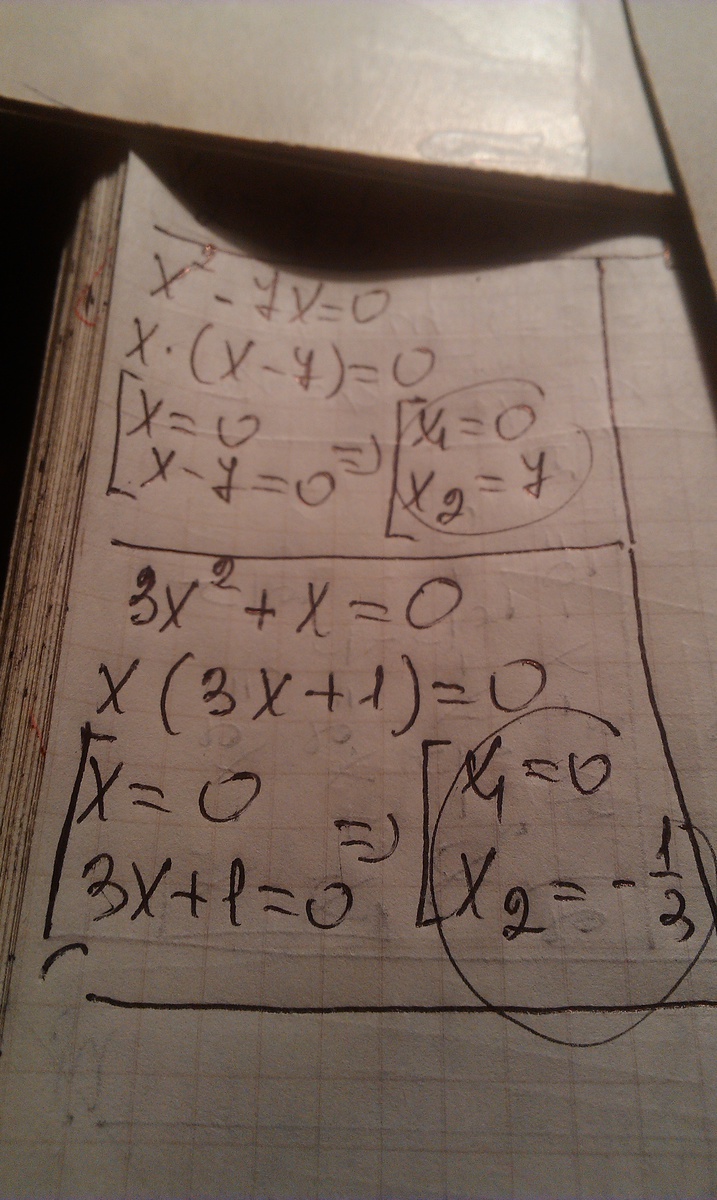 x² - 7x = 0
x · (x - 7) = 0
[ x = 0
x - 7 = 0 => [ x₁ = 0
x₂ = 7
3x² + x = 0
x (3x + 1) = 0
[ x = 0
3x + 1 = 0 => [ x₁ = 0
x₂ = - 1/3